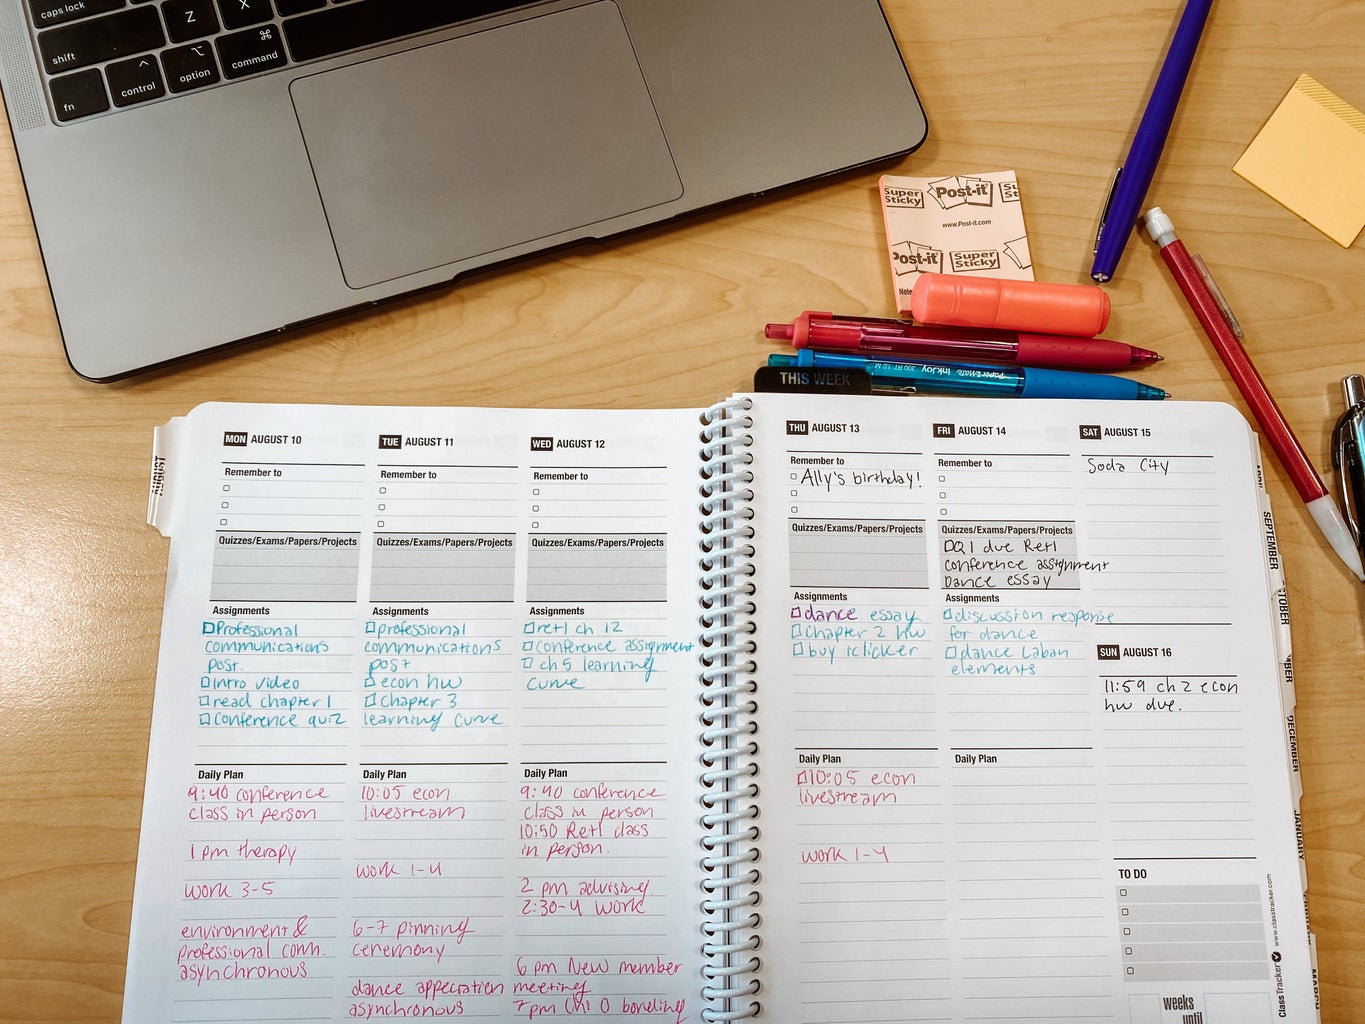 caps lock
Z
X
shift
fn
control
option
command
⌘
Super Sticky
Post-it
www.Post-it.com
Post-it
Super Sticky
Note
PAPER MATE InkJoy 300 RT 1.0 M
THIS WEEK
AUGUST
MON AUGUST 10
Remember to
Quizzes/Exams/Papers/Projects
Assignments
Professional
communications
post.
Intro video
read chapter 1
Conference quiz
Daily Plan
9:40 conference
class in person
1 pm therapy
work 3-5
environment &
professional comm.
asynchronous
TUE AUGUST 11
Remember to
Quizzes/Exams/Papers/Projects
Assignments
professional
communications
post
econ hw
Chapter 3
learning curve
Daily Plan
10:05 econ
livestream
work 1-4
6-7 pinning
ceremony
dance appecration
asynchronous
WED AUGUST 12
Remember to
Quizzes/Exams/Papers/Projects
Assignments
retl ch 12
conference assignment
ch 5 learning
curve
Daily Plan
9:40 conference
class in person
10:50 Retl class
in person.
2 pm advising
2:30-4 work
6 pm New member
meeting
7pm Chi O
THU AUGUST 13
Remember to
Ally's birthday!
Quizzes/Exams/Papers/Projects
Assignments
dance essay
Chapter 2 hw
buy iclicker
Daily Plan
10:05 econ
livestream
work 1-4
FRI AUGUST 14
Remember to
Quizzes/Exams/Papers/Projects
DQ1 due Retl
conference assignment
Dance essay
Assignments
discussion response
for dance
dance Laban
elements
Daily Plan
SAT AUGUST 15
Soda City
SUN AUGUST 16
11:59 ch 2 econ
hw due.
TO DO
weeks
until
ClassTracker www.classtracker.com
SEPTEMBER
DECEMBER
JANUARY